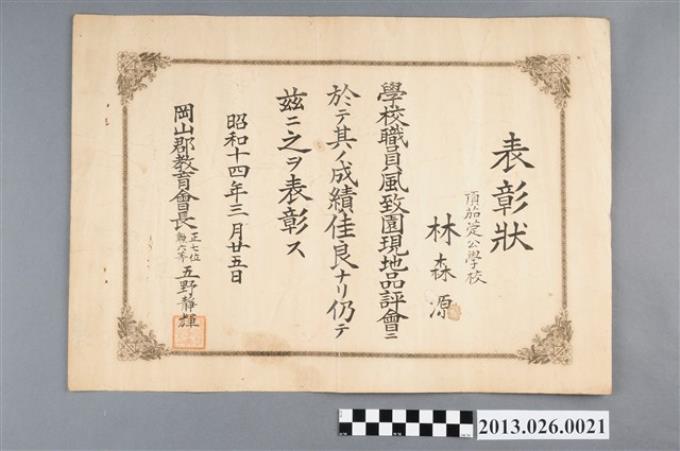 表彰狀
頂茄萣公學校
林森源
學校職員風致園現地品評會ニ
於テ其ノ成績佳良ナリ仍テ
茲ニ之ヲ表彰ス
昭和十四年三月廿五日
岡山郡教育會長正七位勲六等五野靜輝
2013.026.0021